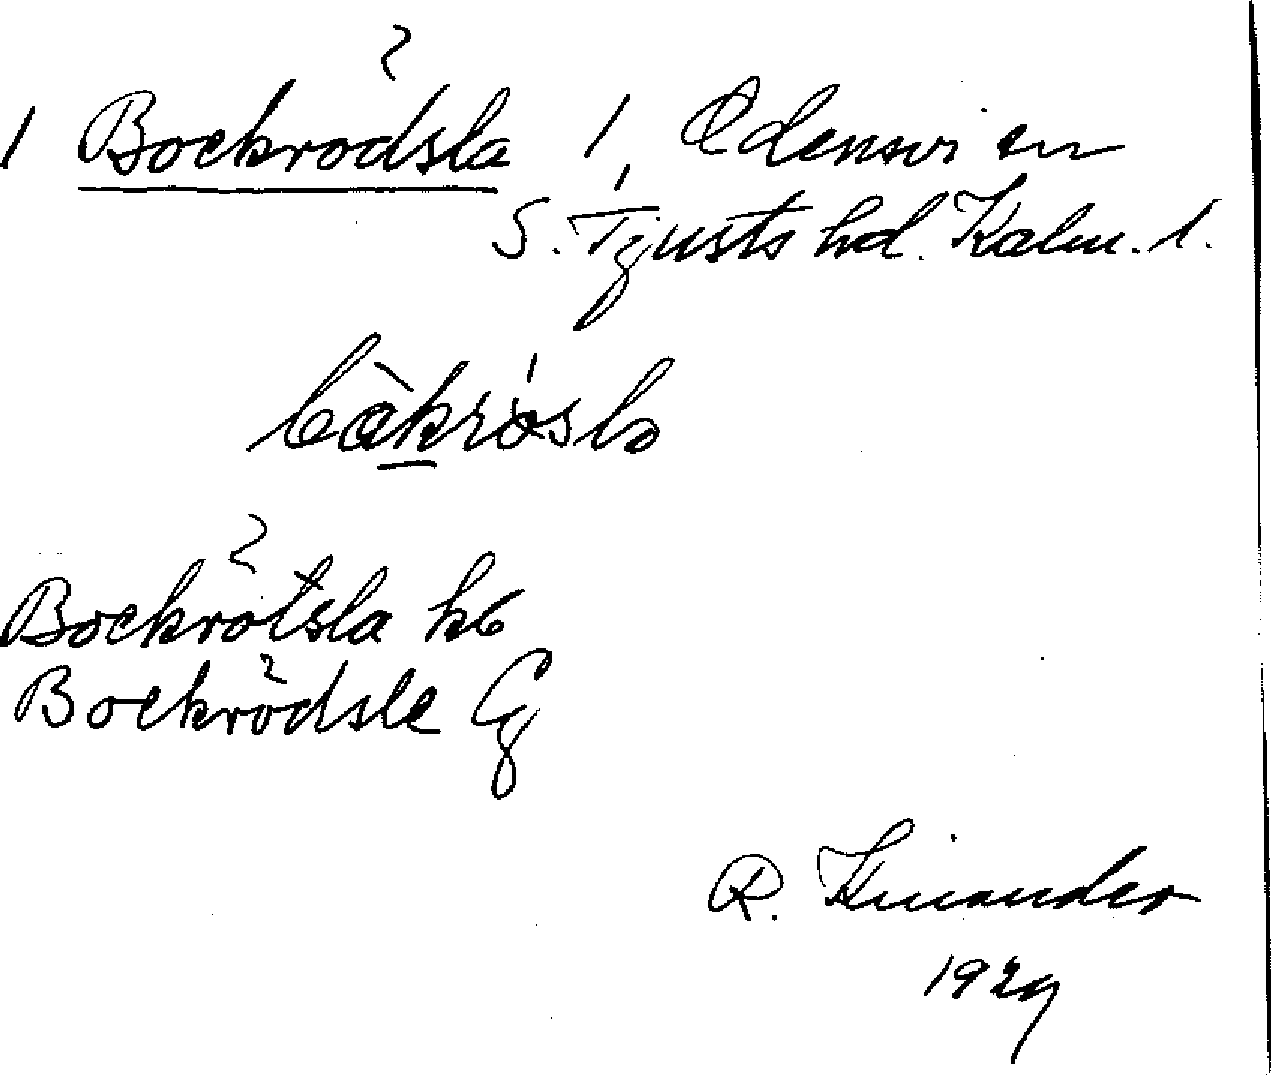 1 Bockrödsla 1, Odensvi sn
S. Tjusts hd. Kalm. l.
bàkrösla
Bockrötsla hb
Bockrödsle Cg
R. Kinander
1929